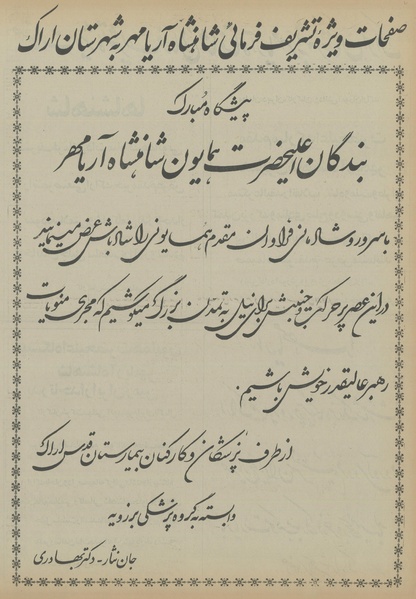 صفحات ویژه تشریف فرمائی شاهنشاه آریامهر به شهرستان اراک
پیشگاه مبارک
بندگان اعلیحضرت همایون شاهنشاه آریامهر
با سرور و شادمانی فراوان مقدم همایونی را شادباش عرض مینمایند
در این عصر پر حرکت و جنبش برای نیل به تمدن بزرگ میکوشیم که مجری منویات
رهبر عالیقدر خویش باشیم.
از طرف پزشکان و کارکنان بیمارستان قدس اراک
وابسته به گروه پزشکی برزویه
جان نثار - دکتر بهادری